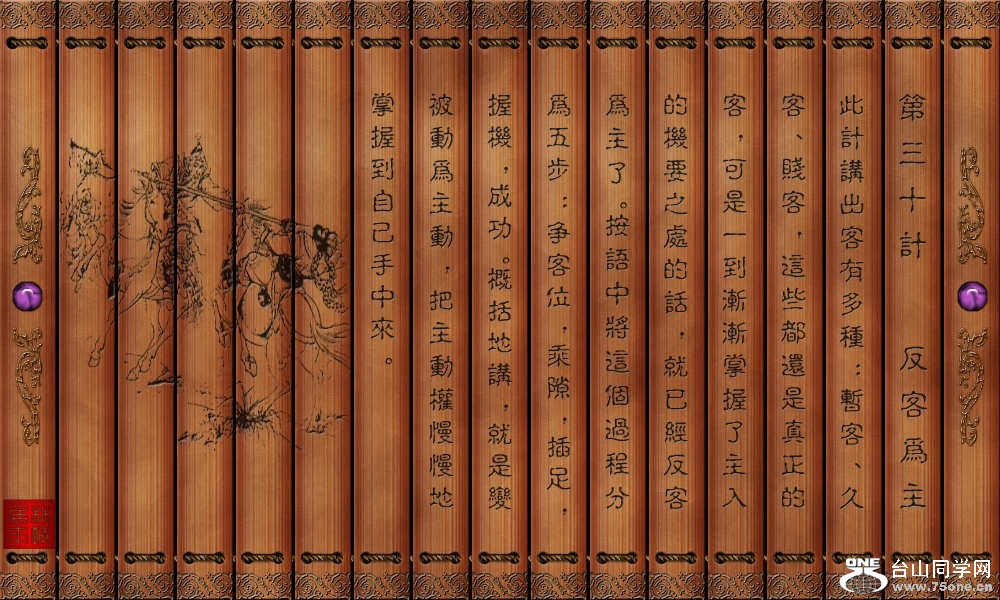 第三十計 反客爲主
此計講出客有多種：暫客、久
客、賤客，這些都還是真正的
客，可是一到漸漸掌握了主人
的機要之處的話，就已經反客
爲主了。按語中將這個過程分
爲五步：争客位，乘隙，插足，
握機，成功。概括地講，就是變
被動爲主動，把主動權慢慢地
掌握到自己手中來。
ONE
台山同学网
www.75one.cn